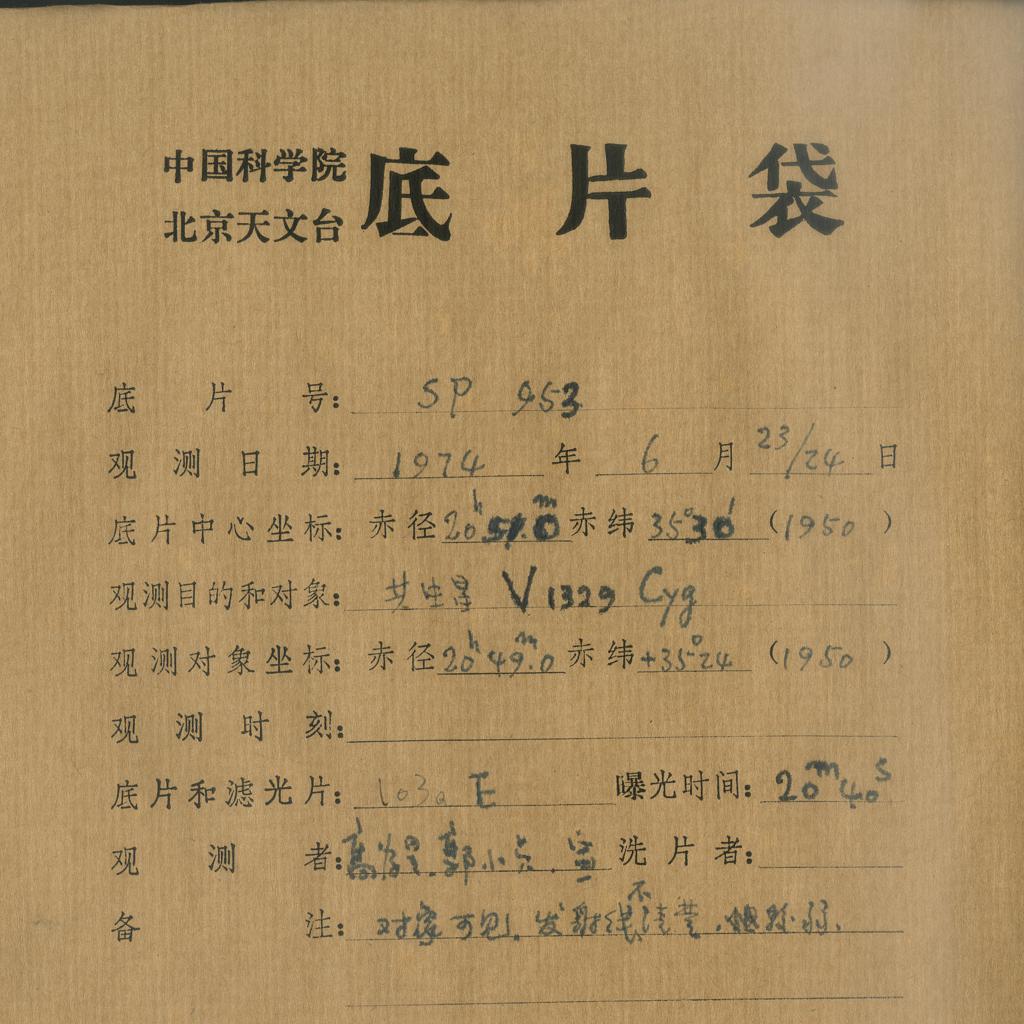 中国科学院
北京天文台
底片袋
底片号: SP 953
观测日期: 1974 年 6 月 23/24 日
底片中心坐标: 赤径 20h51m.0 赤纬 35°30′ (1950)
观测目的和对象: 共生星 V1329 Cyg
观测对象坐标: 赤径 20h49m.0 赤纬 +35°24 (1950)
观测时刻:
底片和滤光片: 103a E 曝光时间: 20m40s
观测者: 高 郭小 洗片者:
备注: 对象可见, 发射线不清楚,